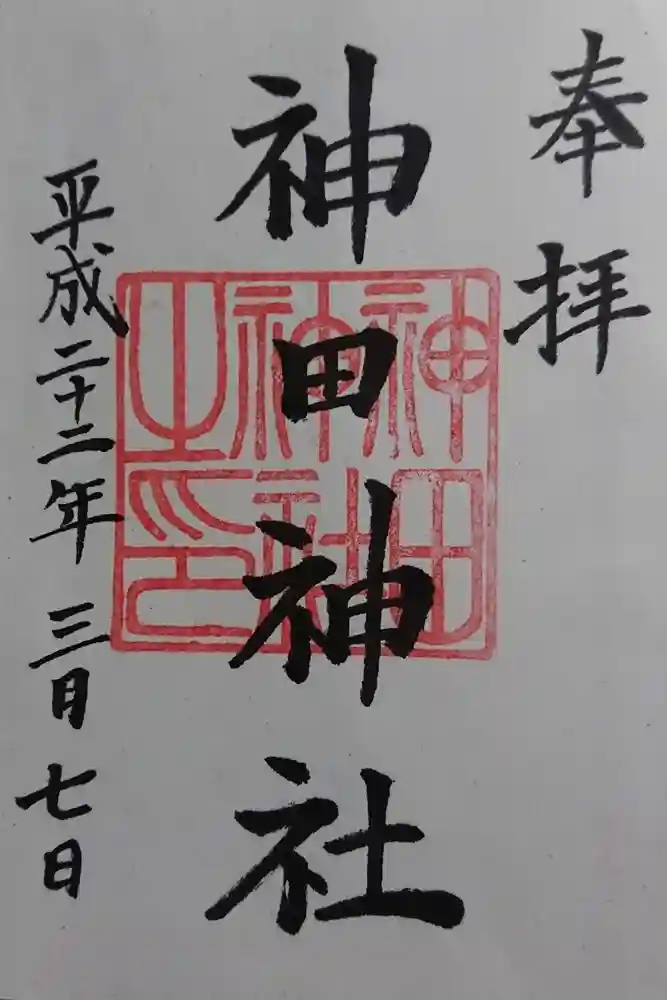 奉拝
神田神社
神田神社之印
平成二十二年三月七日